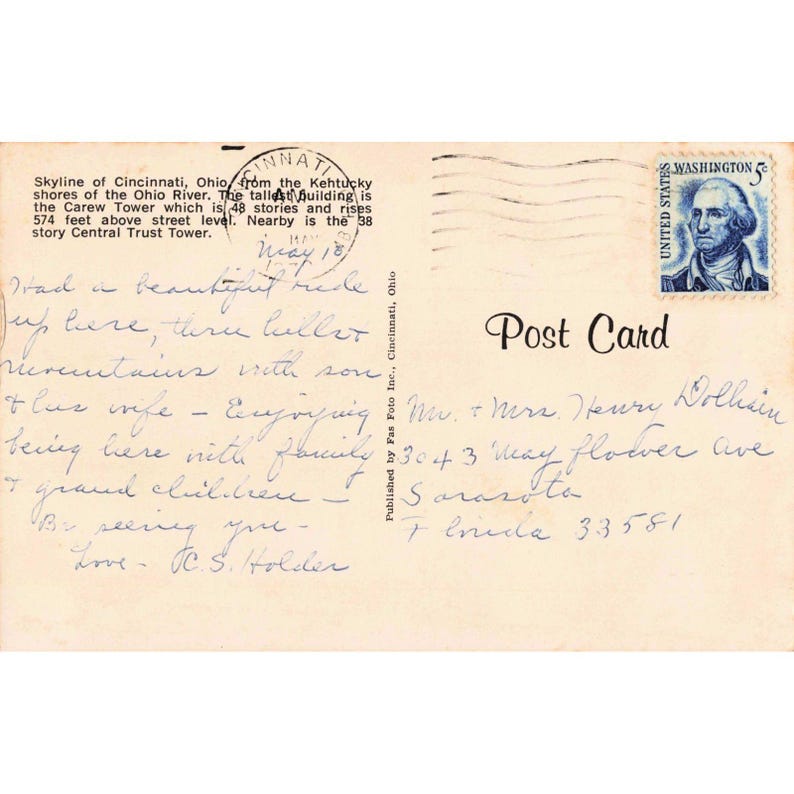 Skyline of Cincinnati, Ohio, from the Kehtucky
shores of the Ohio River. The tallest building is
the Carew Tower which is 48 stories and rises
574 feet above street level. Nearby is the 38
story Central Trust Tower.
CINCINNATI
AM
MAY
UNITED STATES
WASHINGTON 5c
May 18
Had a beautiful ride
up here, three hills &
mountains with son
& his wife – Enjoying
being here with family
& grand children –
Be seeing you –
Love – C.S. Holder
Published by Fas Foto Inc., Cincinnati, Ohio
Post Card
Mr. & Mrs. Henry Dolhain
3043 May flower Ave
Sarasota
Florida 33581